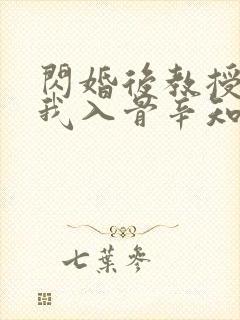 閃婚後教授
我入骨辛知
七葉參